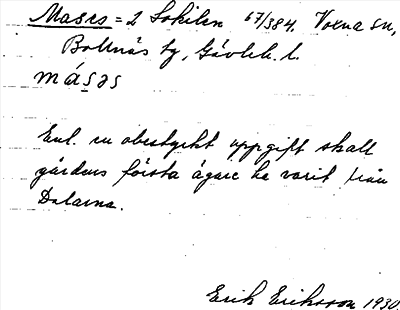 Mases = 2 Sohilen 67/384. Voxna sn,
Bollnäs tg, Gävleb. l.
måsəs
Enl. en obestyrkt uppgift skall
gårdens första ägare ha varit från
Dalarna.
Erik Eriksson 1930.